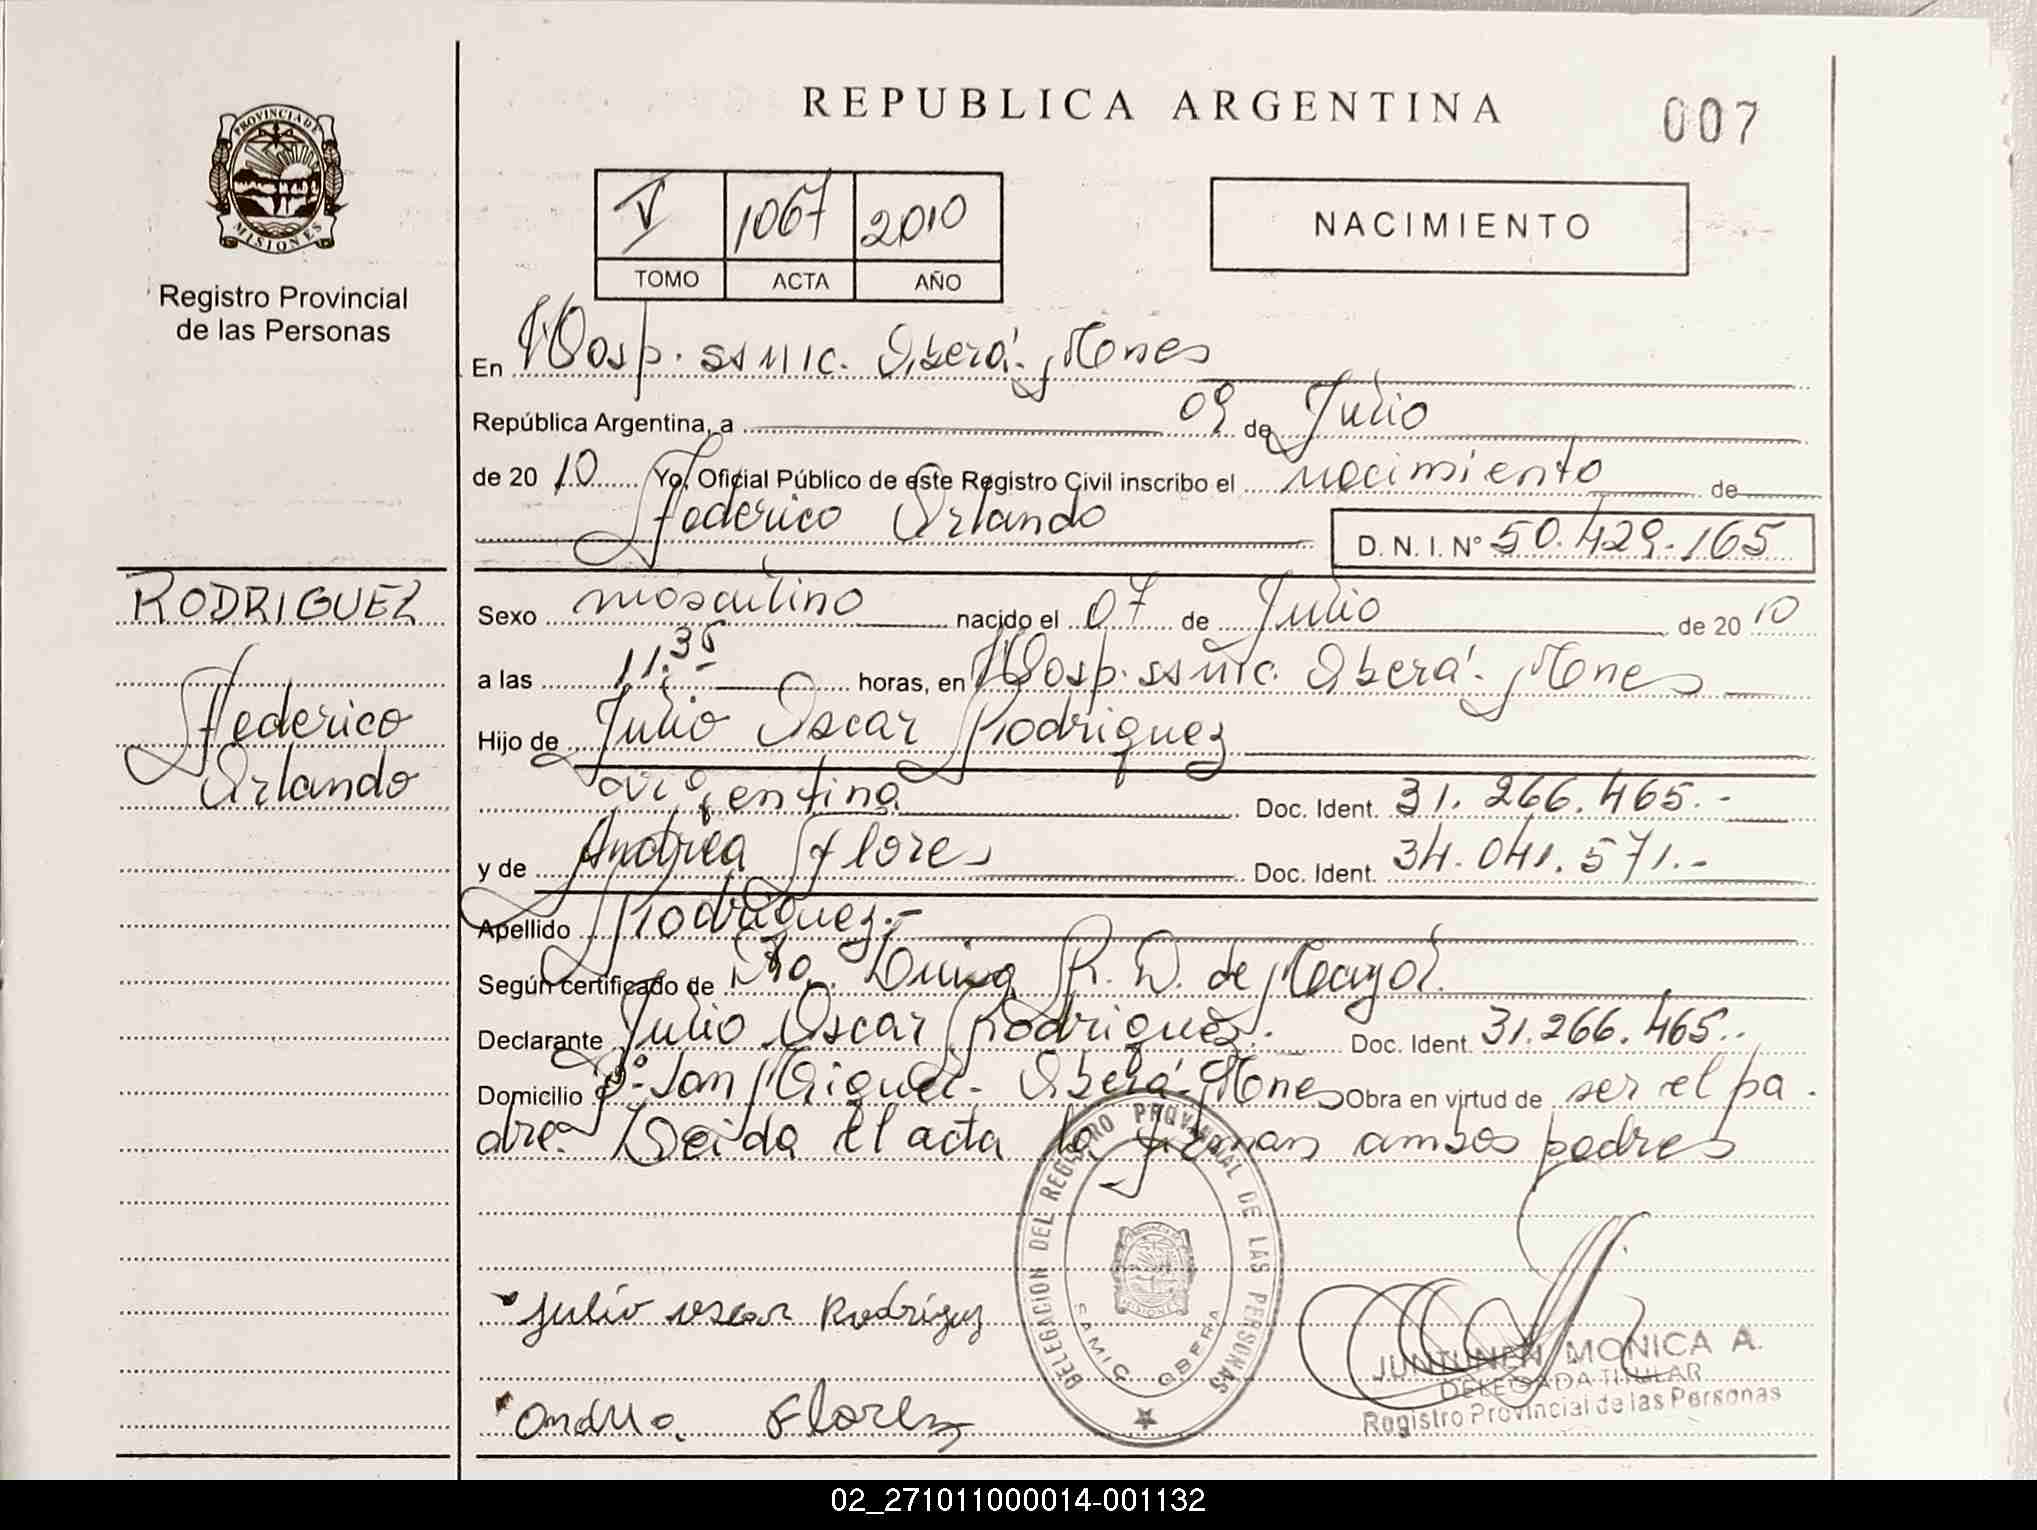 REPUBLICA ARGENTINA
007
PROVINCIA DE
MISIONES
Registro Provincial
de las Personas
V 1067 2010
TOMO ACTA AÑO
NACIMIENTO
En Hosp. SAMIC. Oberá. Mones
República Argentina, a 09 de Julio
de 20 10 Yo, Oficial Público de este Registro Civil inscribo el nacimiento de
Federico Orlando
D. N. I. Nº 50.429.165
RODRIGUEZ
Federico
Orlando
Sexo masculino nacido el 07 de Julio de 20 10
a las 11.35 horas, en Hosp. SAMIC. Oberá. Mones
Hijo de Julio Oscar Rodriguez
argentino Doc. Ident. 31.266.465.-
y de Andrea Flores Doc. Ident. 34.041.571.-
Apellido Rodriguez.-
Según certificado de Dra. R. D. de Mayol.
Declarante Julio Oscar Rodriguez. Doc. Ident. 31.266.465..
Domicilio Bº San Miguel. Oberá. Mones Obra en virtud de ser el pa.
dre. Leida el acta la firman ambos padres
DELEGACION DEL REGISTRO PROVINCIAL DE LAS PERSONAS
SAMIC OBERA
Julio oscar Rodriguz
Andrea. Florez
JUNTUNEN MONICA A.
DELEGADA TITULAR
Registro Provincial de las Personas
02_271011000014-001132